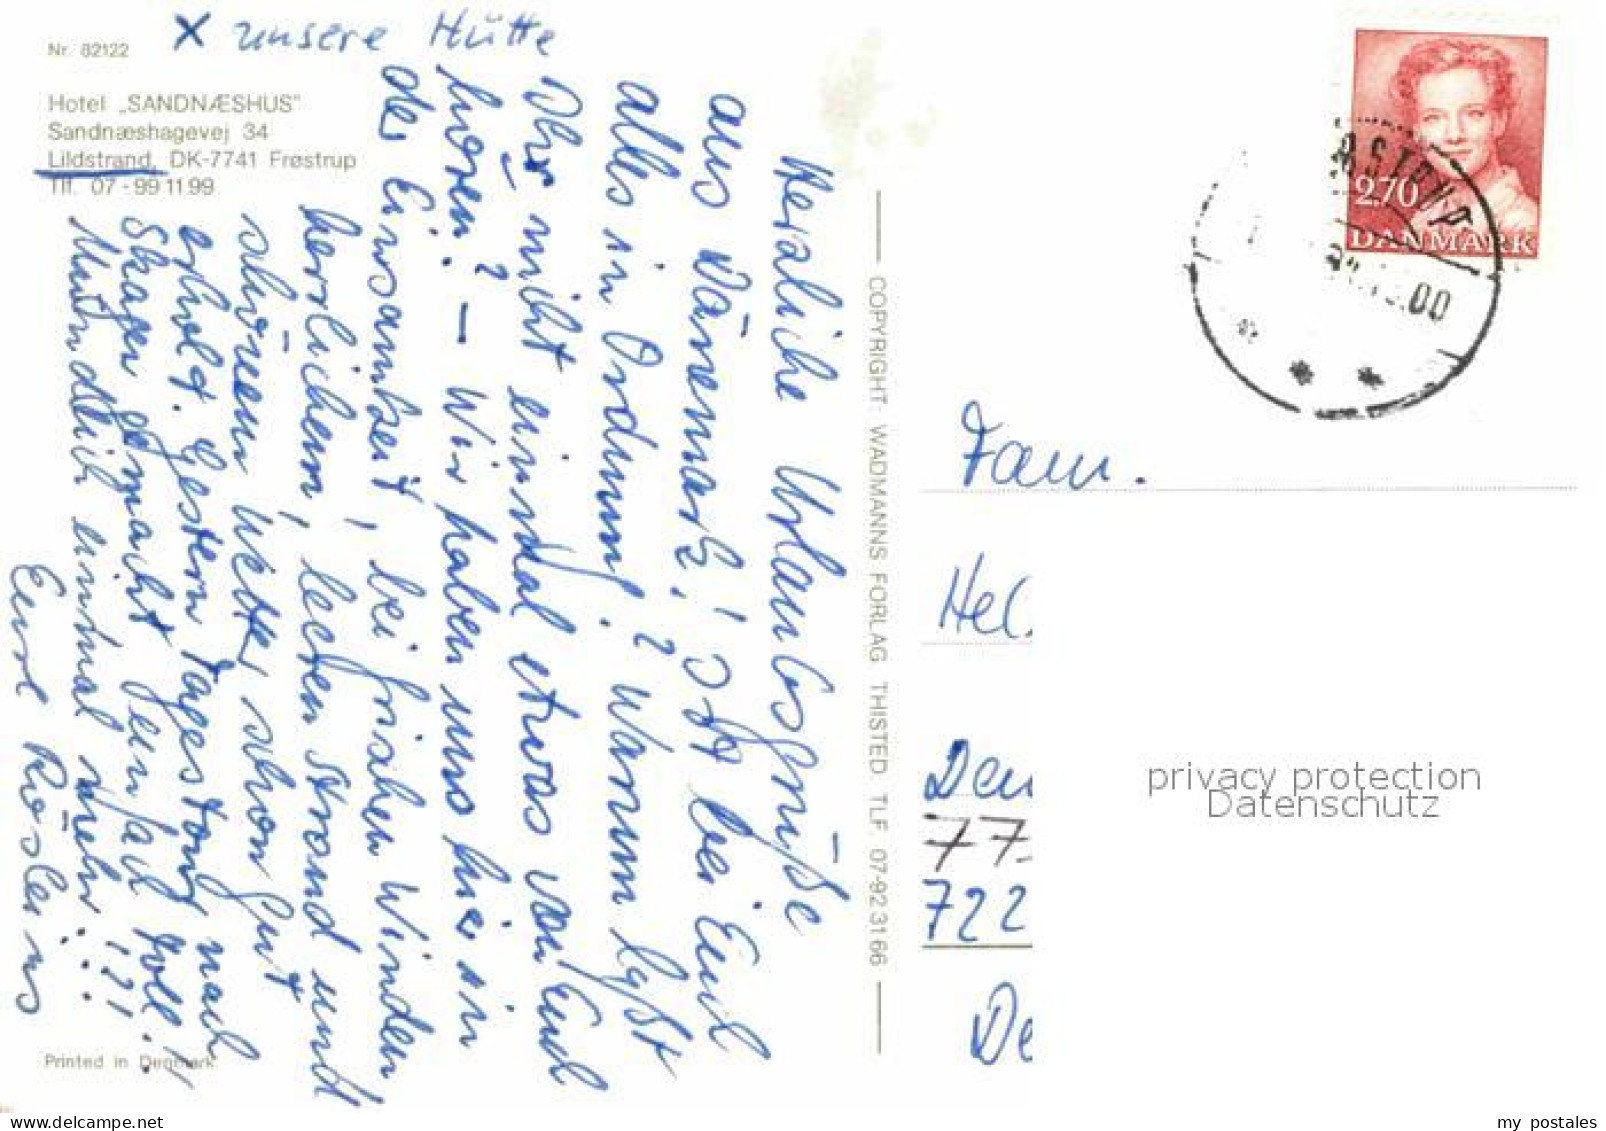 Nr. 82122
x unsere Hütte
Hotel „SANDNÆSHUS"
Sandnæshagevej 34
Lildstrand, DK-7741 Frøstrup
Tlf. 07 - 99 11 99
Herzliche Urlaubsgrüße
aus Dänemark! Ist bei Euch
alles in Ordnung? Warum laßt
Ihr nicht einmal etwas von Euch
hören? – Wir haben uns hier in
der Einsamkeit, bei frischen Winden
herrlichem, leeren Strand und
schönem Wetter schon gut
erholt. Gestern Tagestour nach
Skagen gemacht
Mündlich einmal mehr...!?!
Eure Rösleins
Printed in Denmark
COPYRIGHT: WADMANNS FORLAG THISTED TLF 07-92 31 66
2.70
DANMARK
.00
Fam.
Hel
Den
77
722
De
privacy protection
Datenschutz
my postales